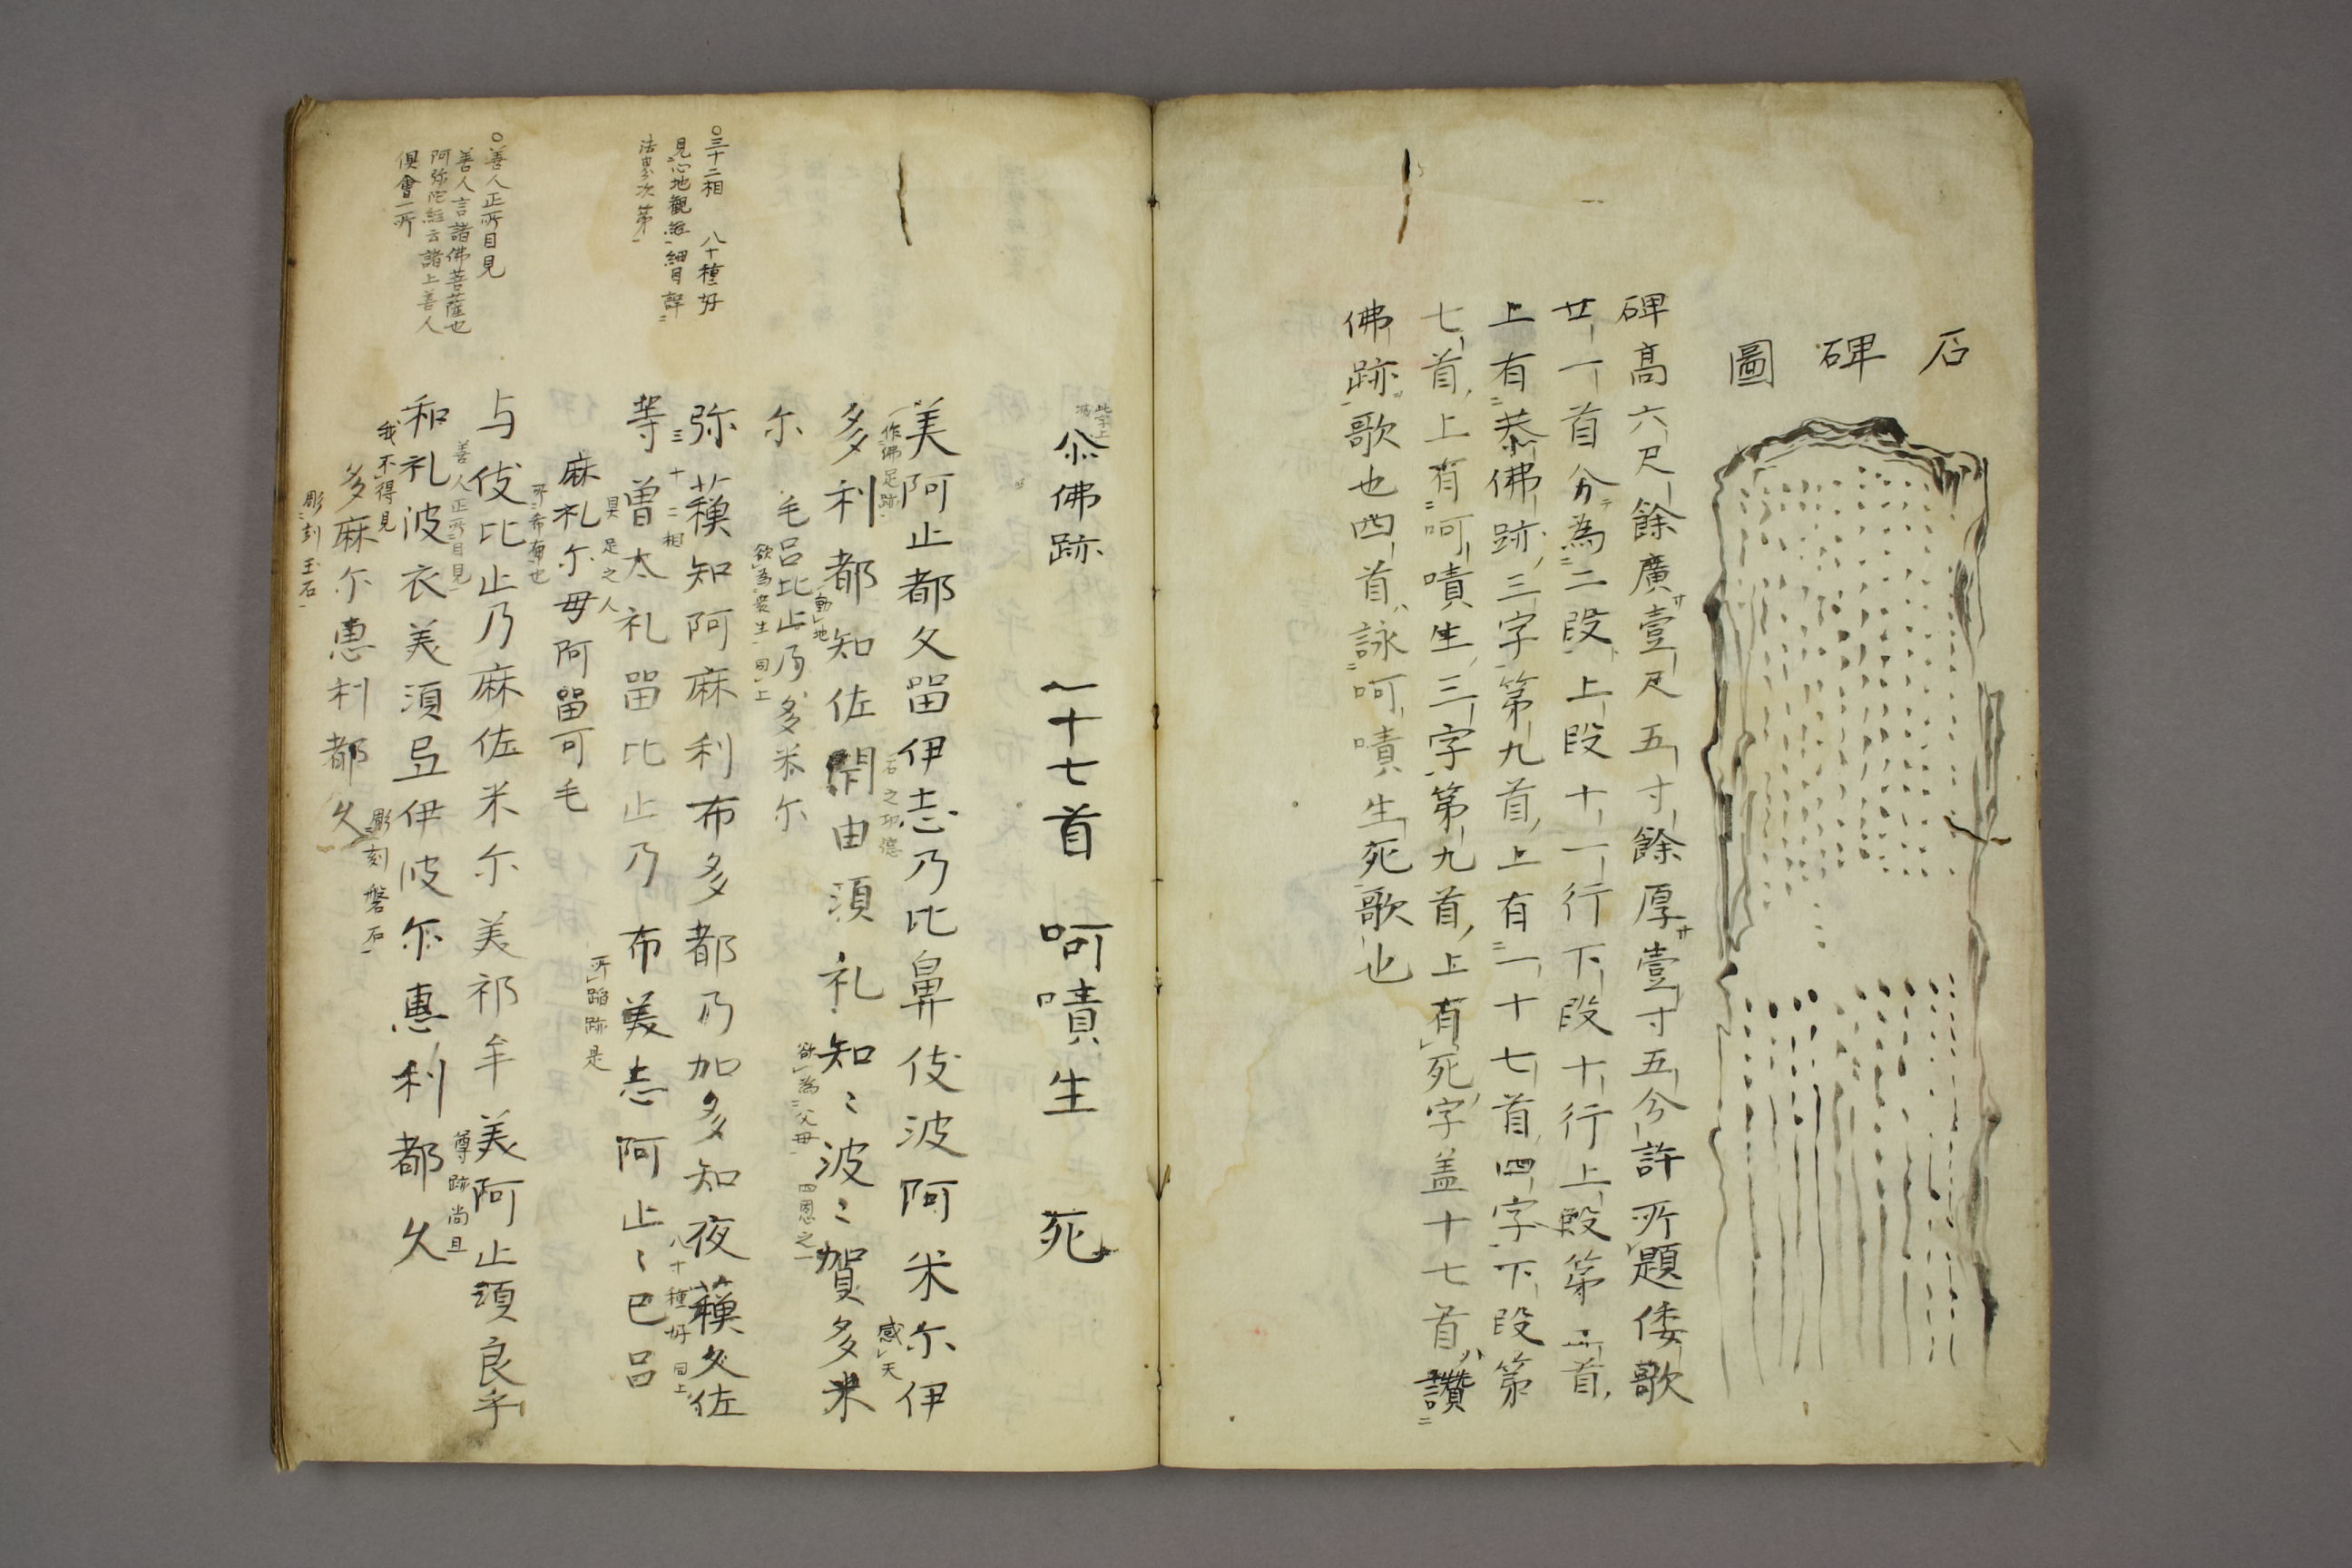 石碑圖
碑高六尺餘廣サ壹尺五寸餘厚サ壹寸五分許所題倭歌
廿一首分テ為二段上段十一行下段十行上段第一首
上有恭佛跡三字第九首上有一十七首四字下段第
七首上有呵嘖生三字第九首上有死字盖十七首ハ讚
佛跡歌也四首ハ詠呵嘖生死歌也
恭佛跡 一十七首 呵嘖生 死
美阿止都久留伊志乃比鼻伎波阿米尓伊
作佛足跡 石之功德 感天
多利都知佐閇由須礼知〻波〻賀多米
動地 欲為父母 四恩之一
尓 毛呂比止乃多米尓
欲為衆生 同上
弥蘓知阿麻利布多都乃加多知夜蘓久佐
三十二相 八十種好 同上
等曽太礼留比止乃布美志阿止〻巴呂
具足之人 所蹈跡是
麻礼尓毋阿留可毛
所希有也
与伎比止乃麻佐米尓美祁牟美阿止須良乎
善人正所目見 尊跡尚且
和礼波衣美須弖伊波尓惠利都久
我不得見 彫刻磐石
多麻尓惠利都久
彫刻玉石
○三十二相 八十種好
見心地觀経細目詳
法界次第
○善人正所目見
善人言諸佛菩薩也
阿弥陀経云諸上善人
俱會一所